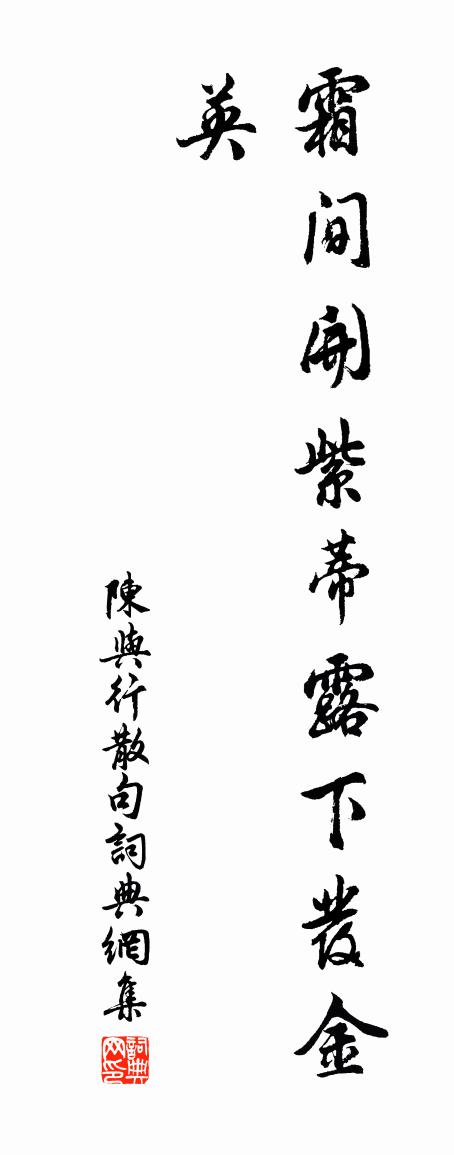 霜間開紫蒂露下發金
英
陳與行散句詞典網集
詞典网印